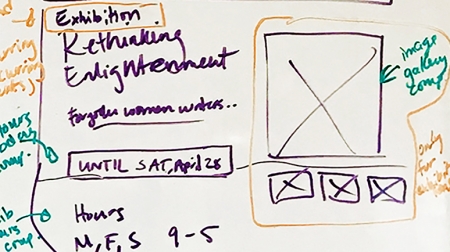 Exhibition
Rethinking
Enlightenment
Forgotten women writers..
UNTIL SAT, April 28
Hours
M, F, S 9-5
image
gallery
comp
only
for
hours